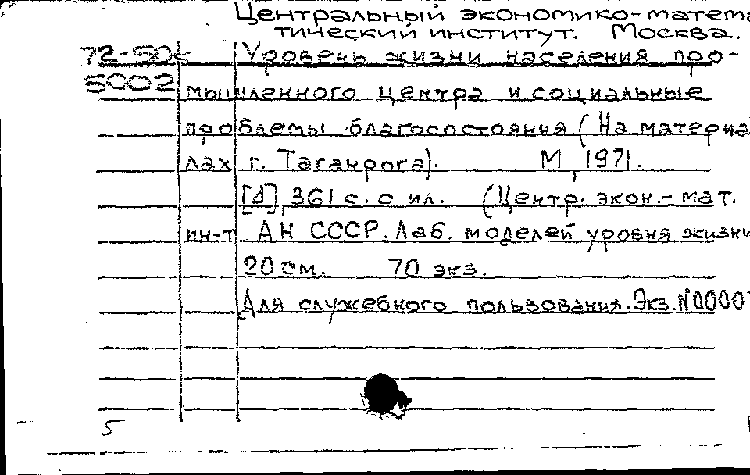 Центральный экономико-матема
тический институт. Москва.
72-50
5002
Уровень жизни населения про-
мышленного центра и социальные
проблемы благосостояния (На материа
лах г. Таганрога). М, 1971.
[Д], 361 с. с ил. (Центр. экон.-мат.
ин-т АН СССР. Лаб. моделей уровня жизни
20 см. 70 экз.
Для служебного пользования. Экз. N 0000
5